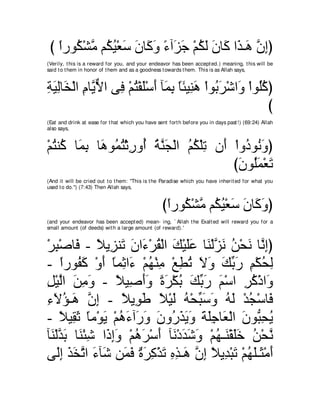 (إِنَّ هَـذَا كَانَ لَكُمْ جَزَآءً وَكَانَ سَعْيُكُم مَّشْكُوراً )
(Verily, this is a reward for you, and your endeavor has been accepted.) meaning, this will be
said to them in honor of them and as a goodness towards them. This is as Allah says,
(كُلُواْ وَاشْرَبُواْ هَنِيئَاً بِمَآ أَسْلَفْتُمْ فِى الاٌّيَّامِ الْخَالِيَةِ
)
(Eat and drink at ease for that which you have sent forth before you in days past!) (69:24) Allah
also says,
(وَنُودُواْ أَن تِلْكُمُ الْجَنَّةُ أُورِثْتُمُوهَا بِمَا كُنتُمْ
تَعْمَلُونَ)
(And it will be cried out to them: "This is the Paradise which you have inherited for what you
used to do.") (7:43) Then Allah says,
(وَكَانَ سَعْيُكُم مَّشْكُوراً)
(and your endeavor has been accepted) mean- ing, `Allah the Exalted will reward you for a
small amount (of deeds) with a large amount (of reward).'
(إِنَّا نَحْنُ نَزَّلْنَا عَلَيْكَ الْقُرْءَانَ تَنزِيلاً - فَاصْبِرْ
لِحُكْمِ رَبِّكَ وَلاَ تُطِعْ مِنْهُمْ ءَاثِماً أَوْ كَفُوراً -
وَاذْكُرِ اسْمَ رَبِّكَ بُكْرَةً وَأَصِيلاً - وَمِنَ الَّيْلِ
فَاسْجُدْ لَهُ وَسَبِّحْهُ لَيْلاً طَوِيلاً - إِنَّ هَـؤُلاَءِ
يُحِبُّونَ الْعَاجِلَةَ وَيَذَرُونَ وَرَآءَهُمْ يَوْماً ثَقِيلاً -
نَّحْنُ خَلَقْنَـهُمْ وَشَدَدْنَآ أَسْرَهُمْ وَإِذَا شِئْنَا بَدَّلْنَآ
أَمْثَـلَهُمْ تَبْدِيلاً إِنَّ هَـذِهِ تَذْكِرَةٌ فَمَن شَآءَ اتَّخَذَ إِلَى